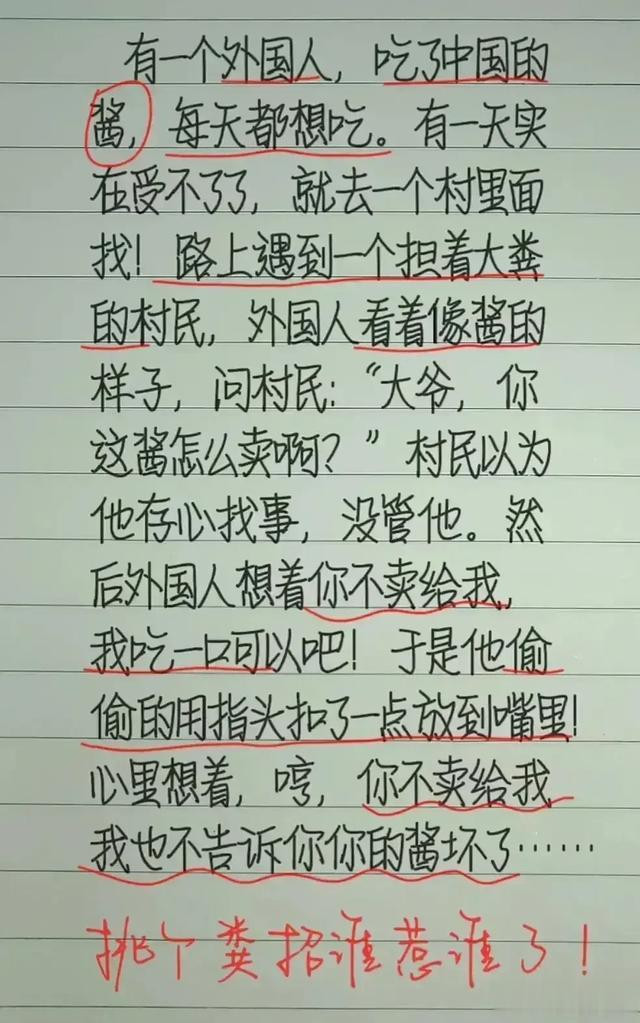 有一个外国人，吃了中国的
酱，每天都想吃。有一天实
在受不了了，就去一个村里面
找！路上遇到一个担着大粪
的村民，外国人看着像酱的
样子，问村民：“大爷，你
这酱怎么卖啊？”村民以为
他存心找事，没管他。然
后外国人想着你不卖给我，
我吃一口可以吧！于是他偷
偷的用指头扣了一点放到嘴里！
心里想着，哼，你不卖给我，
我也不告诉你你的酱坏了……
挑个粪招谁惹谁了！